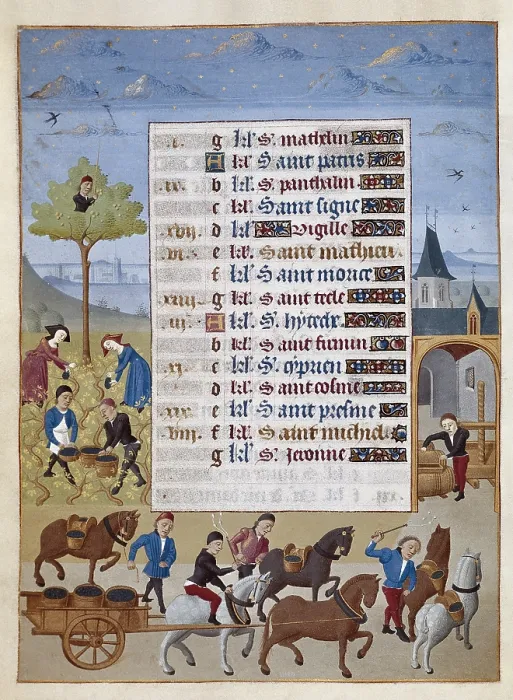 g kl S. mathelin
A kl Saint patris
.ix. b kl S. panthalin
c kl Saint signe
.xvij. d kl vigille
.vi. e kl Saint mathieu
f kl Saint morice
.xiiij. g kl Saint tecle
.iii. A kl S.
b kl Saint furmin
.xi. c kl S. cyprien
d kl Saint cosme
.xix. e kl Saint presme
.viij. f kl Saint michiel
g kl S. jeronne